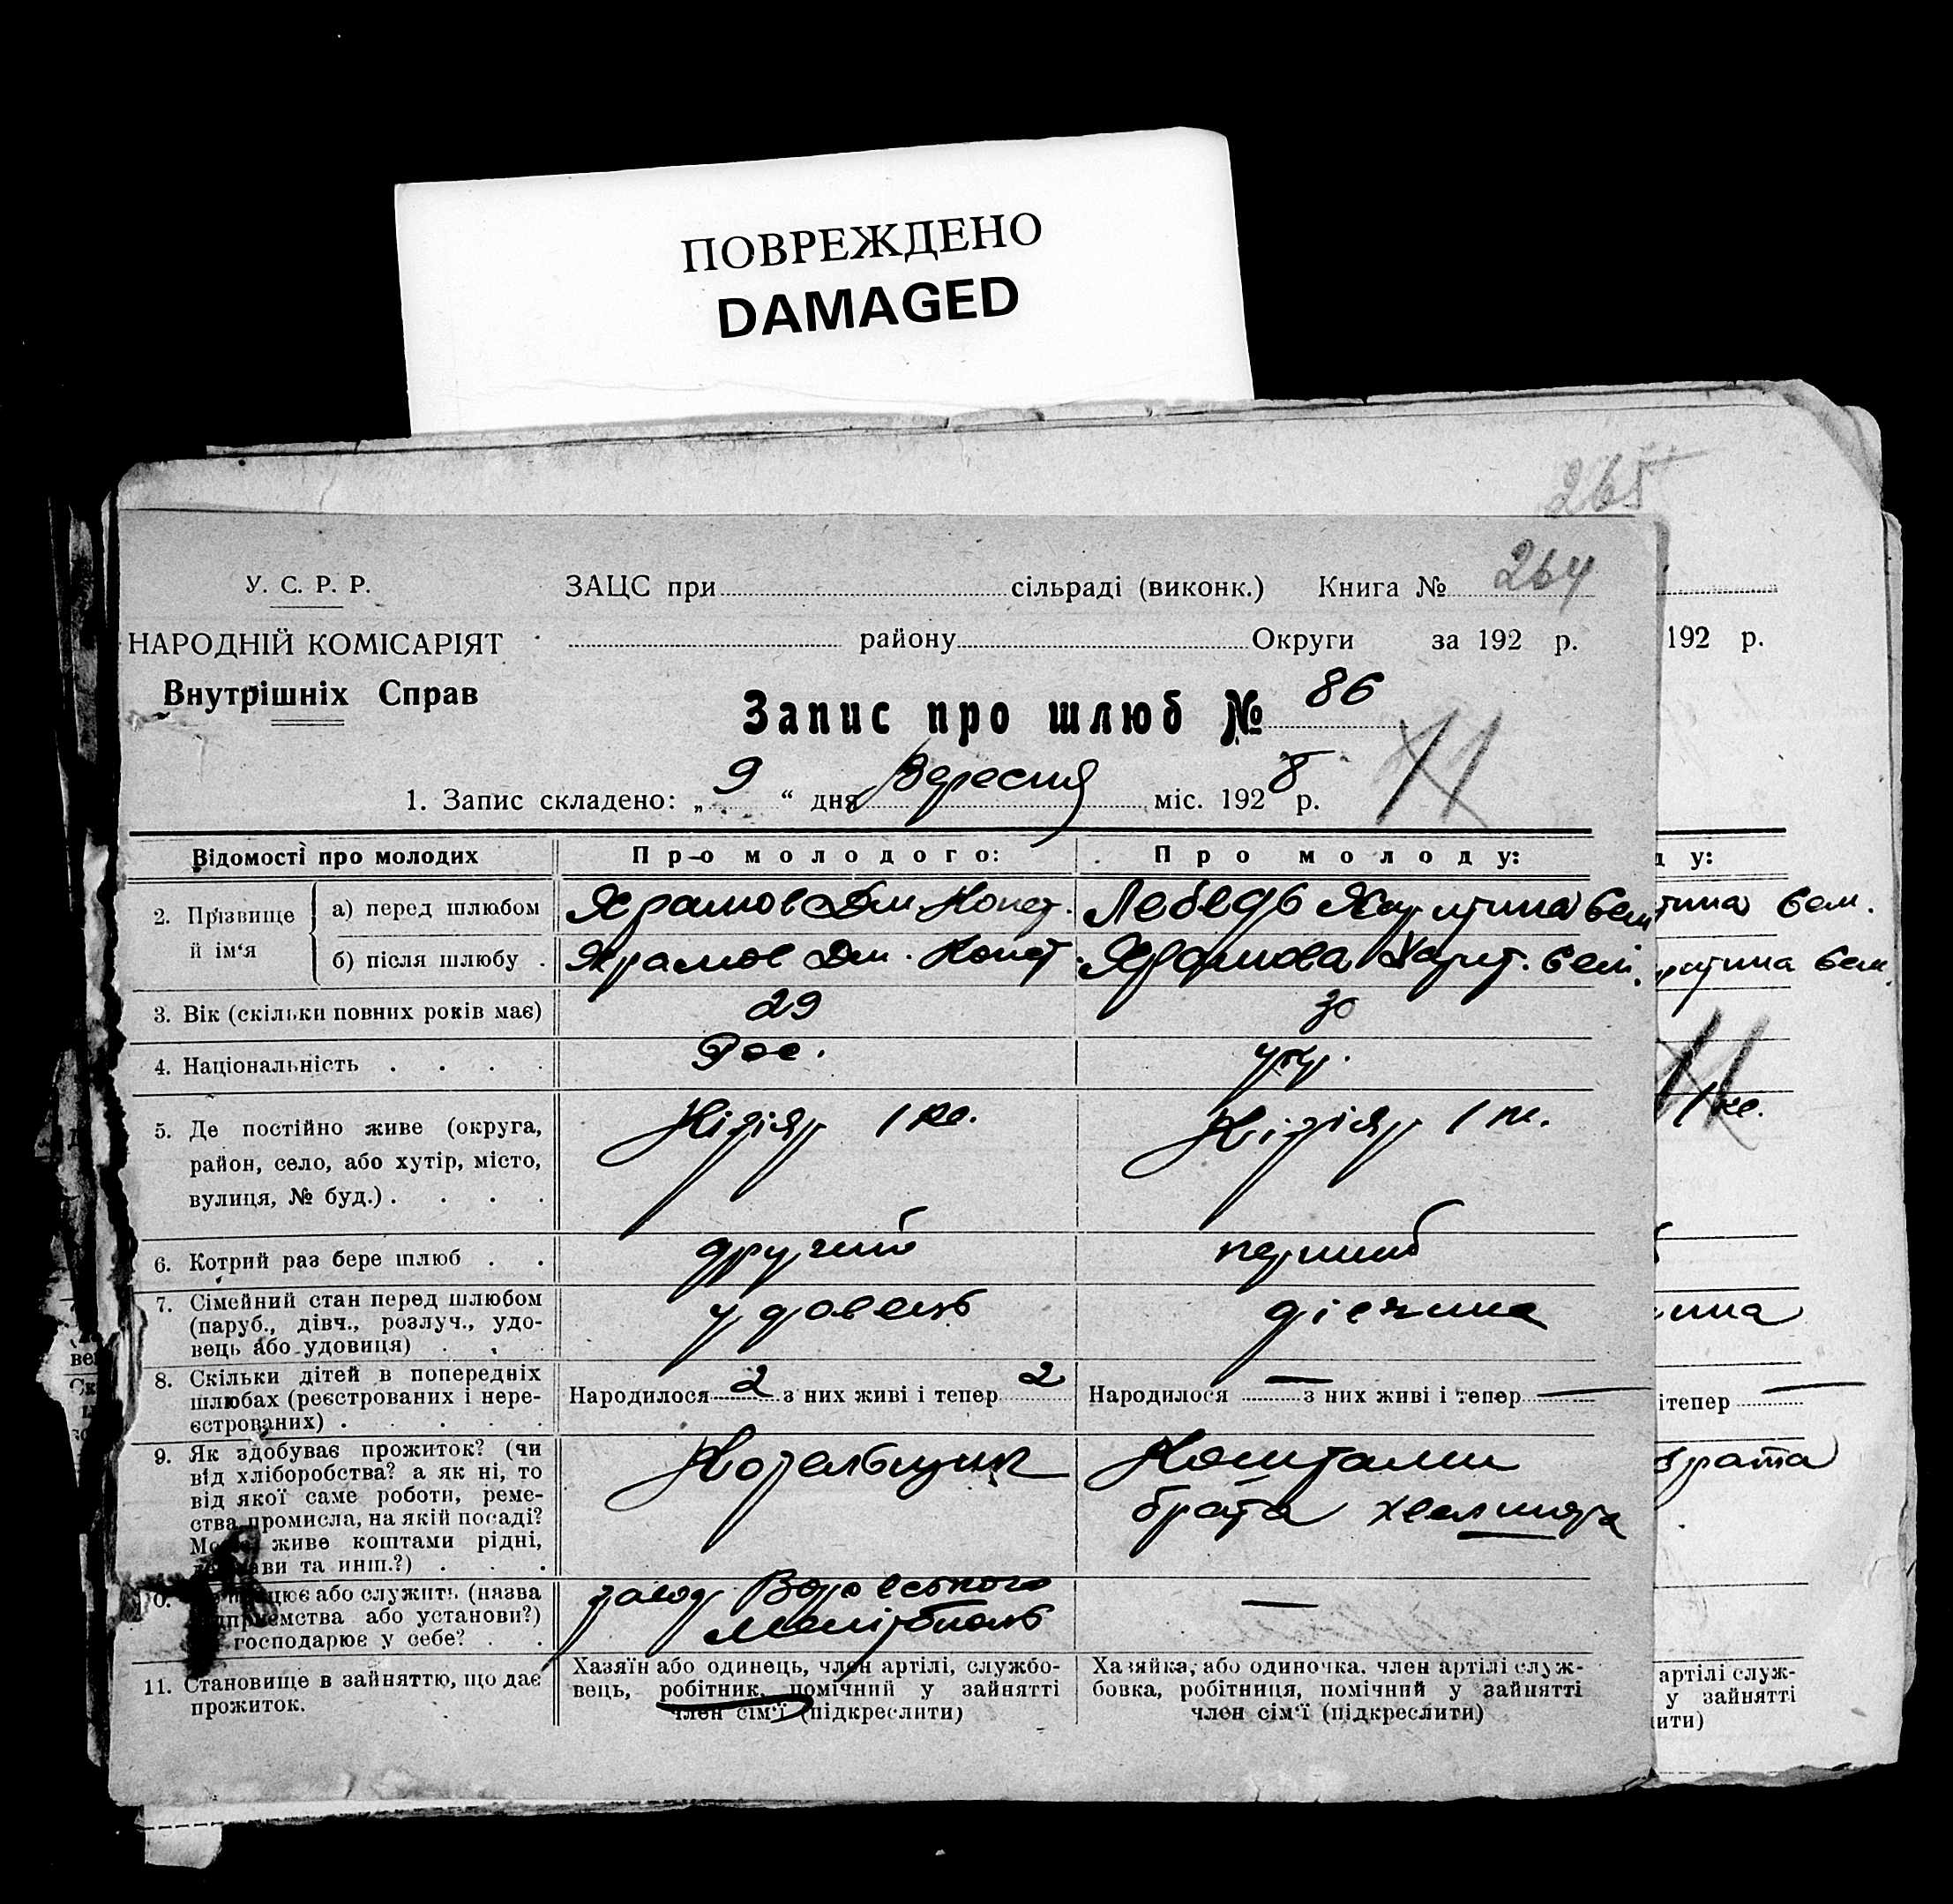 ПОВРЕЖДЕНО
DAMAGED
265
264
У. С. Р. Р.
ЗАЦС при сільраді (виконк.) Книга №
НАРОДНІЙ КОМІСАРІЯТ
району Округи за 192 р.
192 р.
Внутрішніх Справ
Запис про шлюб № 86
1. Запис складено: „ 9 “ дня Вересня міс. 1928 р.
Відомості про молодих
Про молодого:
Про молоду:
у:
2. Прізвище й ім‘я
а) перед шлюбом
Дм. Конст.
Лебедь
Сем.
б) після шлюбу .
Дм. Конст.
Сем.
3. Вік (скільки повних років має)
29
30
4. Національність . . . .
Рос.
укр.
5. Де постійно живе (округа,
район, село, або хутір, місто,
вулиця, № буд.) . . . .
6. Котрий раз бере шлюб . .
другий
перший
7. Сімейний стан перед шлюбом
(паруб., дівч., розлуч., удо-
вець або удовиця) . .
удовець
дівчина
8. Скільки дітей в попередніх
шлюбах (реєстрованих і нере-
єстрованих) . . . . .
Народилося 2 з них живі і тепер 2
Народилося — з них живі і тепер —
ітепер
9. Як здобуває прожиток? (чи
від хліборобства? а як ні, то
від якої саме роботи, реме-
ства промисла, на якій посаді?
живе коштами рідні,
та инш.?) . . .
Котельщик
Коштами
брата
брата
або служить (назва
або установи?)
господарює у себе? . .
завод
—
11. Становище в зайняттю, що дає
прожиток.
Хазяїн або одинець, член артілі, службо-
вець, робітник, помічний у зайнятті
член сім‘ї (підкреслити)
Хазяйка, або одиночка, член артілі служ-
бовка, робітниця, помічний у зайнятті
член сім‘ї (підкреслити)
артілі служ-
у зайнятті